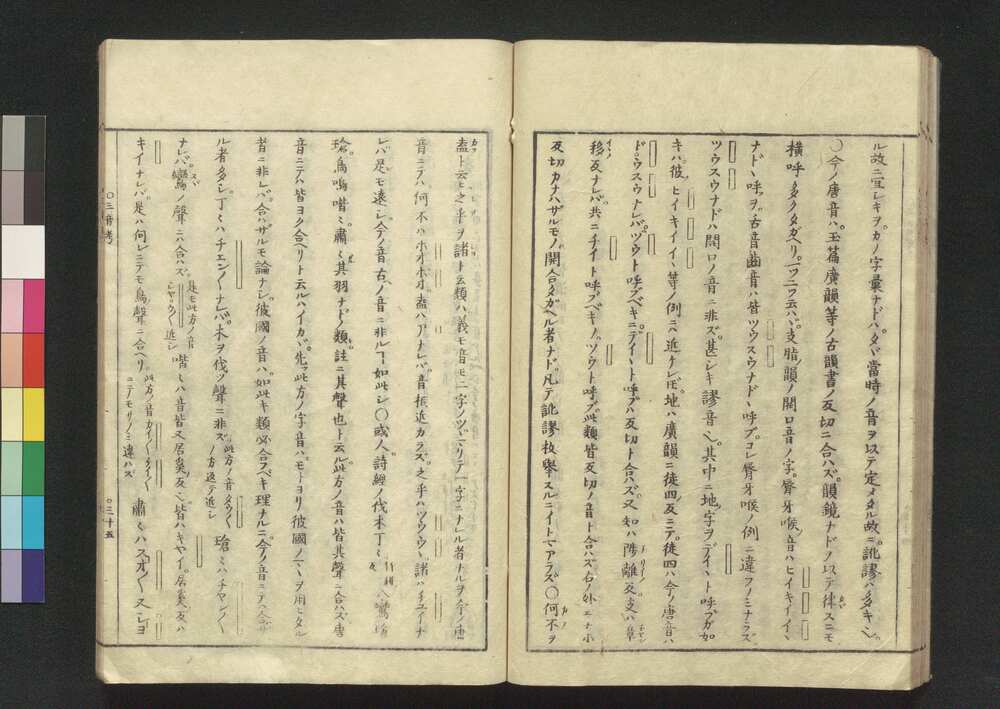 ル故ニ宜シキヲ。カノ字彙ナドハ。タヾ當時ノ音ヲ以テ定メタル故ニ。訛謬ハ多キ也。
○今ノ唐音ハ。玉篇廣韻等ノ古韻書ノ反切ニ合ハズ。韻鏡ナドノ以テ律スニモ
横呼多クタガヘリ。一ツ二ツ云ハヾ。支脂ノ韻ノ開口音ノ字。脣牙喉ノ音ハヒイキイイヽ
ナドヽ呼ヲ。舌音齒音ハ皆ツウスウナドヽ呼ブ。コレ脣牙喉ノ例ニ違フノミナラズ
ツウスウナドハ開口ノ音ニ非ズ。甚シキ謬音也。其中ニ地ノ字ヲデイヽト呼ブガ如
キハ。彼ノヒイキイイヽ等ノ例ニハ近ケレ𪜈。地ハ廣韻ニ徒四反ニテ。徒四ハ今ノ唐音ハ
ドウスウナレバ。ヅウト呼ブベキニ。デイヽト呼ブハ反切ト合ハズ。又知ハ陟離反。支ハ章
移反ナレバ。共ニチイト呼ブベキヲ。ツウト呼ブ。此類皆反切ノ音ト合ハズ。右ノ外ニモ小
反切カナハザルモノ。開合タガヘル者ナド。凡テ訛謬枚擧スルニイトマアラズ。○何不ヲ
盍ト云ヒ。之乎ヲ諸ト云類ハ。義モ音モ二字ノツヾマリテ一字ニナレル者ナルヲ。今ノ唐
音ニテハ何不ハホオホポ。盍ハアナレバ。音振近カラズ。之乎ハツウウヽ。諸ハチユイナ
レバ。是モ遠シ。今ノ音古ノ音ニ非ルヿ如此シ。○或人。詩經ノ伐木丁ミ。八鸞瑲
瑲。鳥鳴喈ミ。肅ミ其羽ナドノ類。註ニ其聲也ト云ル。此方ノ音ハ皆其聲ニ合ハズ。唐
音ニテハ皆ヨク合ヘリト云ルハイカヾ。先ヅ此方ノ字音ハ。モトヨリ彼國ノ音ヲ用ヒタル
者ニ非レバ。合ハザルモ論ナシ。彼國ノ音ハ。如此キ類必合フベキ理ナルニ。今ノ音ニテハ合ハ
ル者多シ。丁ミハチエン〱ナレバ。木ヲ伐ツ聲ニ非ズ。此方ノ音タウ〱ノ方返テ近シ 瑲ミハチヤン〱
ナレバ。鸞ノ聲ニハ合ハズ。是モ此方ノ音シヤウ〱近シ 喈ミハ音皆又居奚反也。皆ハキヤイ。居奚反ハ
キイナレバ。是ハ何レニテモ鳥聲ニ合ヘリ。此方ノ音カイ〱ケイ〱ニテモサノミ違ハズ 肅ミハスオ〱スレヨ
○三音考
○三十五